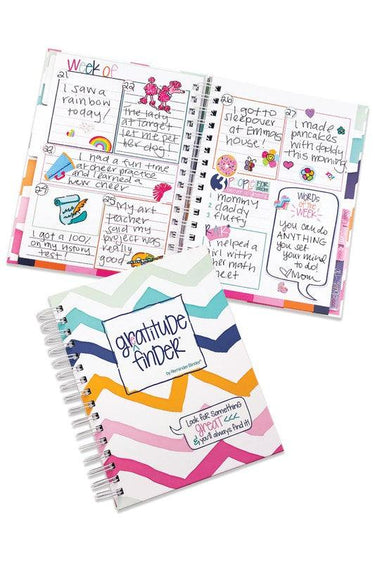 Week of
21
I saw a
rainbow
today!
22
The lady
at Target
let me pet
her dog!
23
I had a fun time
at cheer practice
and learned a
new cheer
24
I got a 100%
on my history
test!
25
My art
teacher
said my
project was
really
good
26
I got to
sleepover
at Emmas
house!
27
I made
pancakes
with daddy
this morning
mommy
daddy
fluffy
I helped a
girl with
her math
sheet
WORDS
of the
WEEK
You can do
ANYTHING
you set
your mind
to do!
Mom
gratitude
finder
by ReminderBinder®
Look for something
great <<<
& you'll always find it!